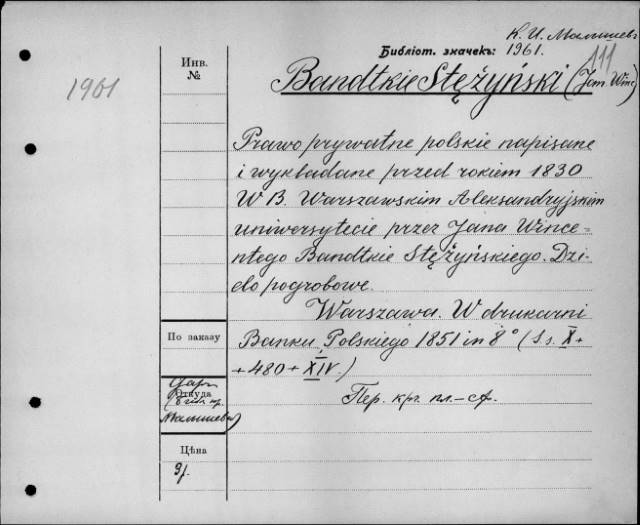 К. И. Малышев
Библіот. значекъ: 1961.
111
1961
Инв.
№
Bandtkie Stężyński (Jan Winc)
Prawo prywatne polskie napisane
i wykładane przed rokiem 1830
W B. Warszawskim Aleksandryjskim
uniwersytecie przez Jana Wince-
ntego Bandtkie Stężyńskiego. Dzi-
eło pogrobowe.
Warszawa. W drukarni
Banku Polskiego 1851 in 8° (Ss. X+
+480+XIV.)
Пер. крг. пл.-сф.
По заказу
Откуда
Даръ
Малышева)
Цѣна
3р.